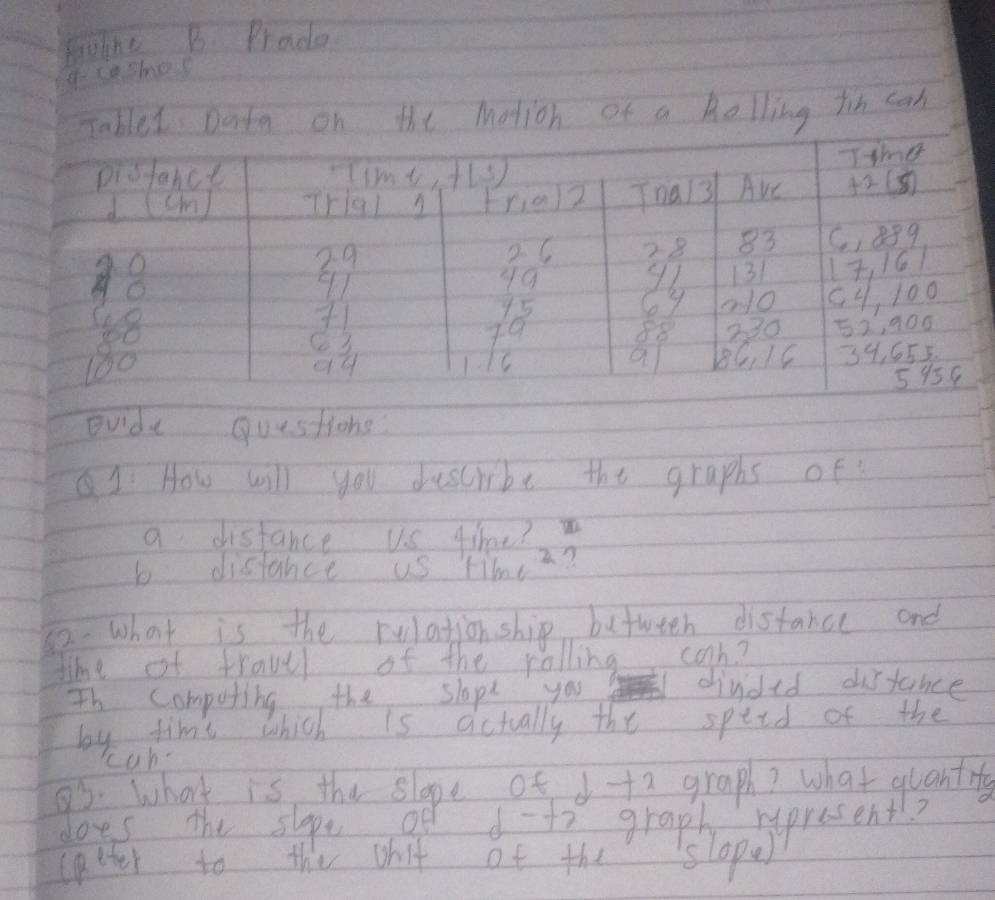 B. Prado
9-cosmos
Table1: Data on the Motion of a Rolling tin can
Distance Time, t(s) Time
d (cm) Trial 1 Trial 2 Trial 3 Ave t2 (s)
20 29 26 28 83 6,889
40 41 49 41 131 17,161
71 75 64 210 44,100
63 79 88 230 52,900
100 94 1.16 91 186,16 34,655.
5456
Guide Questions:
Q1: How will you describe the graphs of:
a. distance vs time?
b distance vs time2?
Q2. What is the relationship between distance and
time of travel of the rolling can?
In computing the slope you divided distance
by time which is actually the speed of the
can.
Q3. What is the slope of d-t2 graph? what quantity
does the slope of d-t2 graph represent?
(Refer to the unit of the slope)